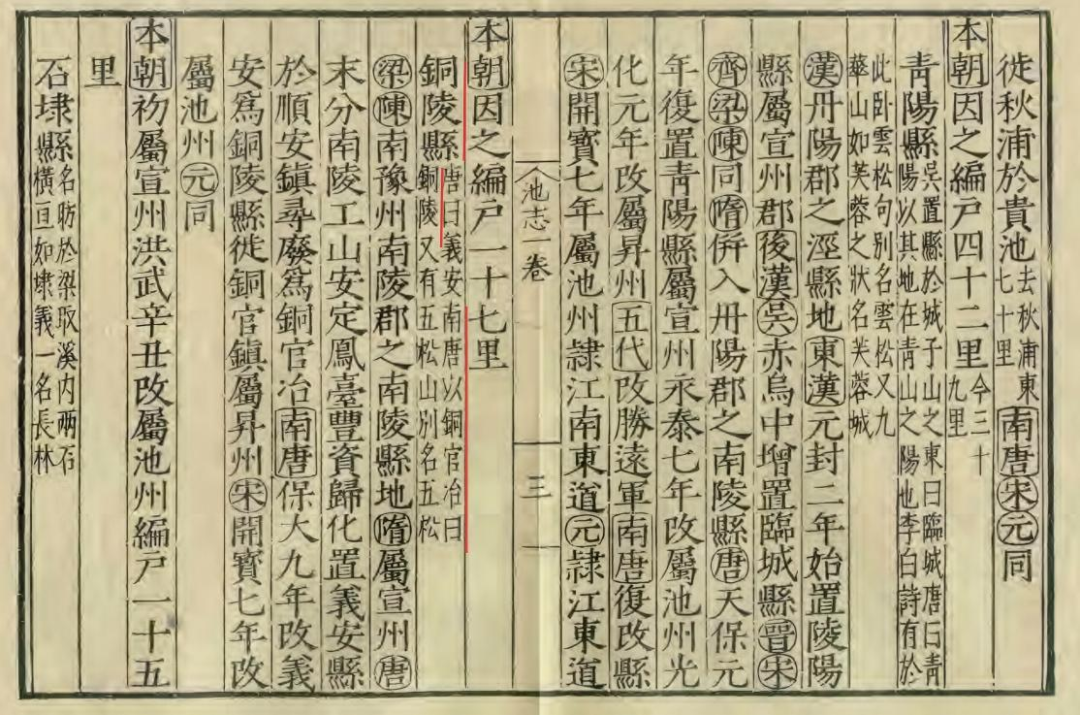 徙秋浦於貴池去秋浦東七十里南唐宋元同
本朝因之編戸四十二里今三十九里
青陽縣吳置縣於城子山之東曰臨城唐曰青陽以其地在青山之陽也李白詩有於
此卧雲松句别名雲松又九華山如芙蓉之狀名芙蓉城
漢丹陽郡之涇縣地東漢元封二年始置陵陽
縣屬宣州郡後漢吳赤烏中增置臨城縣晉宋
齊梁陳同隋併入丹陽郡之南陵縣唐天保元
年復置青陽縣屬宣州永泰七年改屬池州光
化元年改屬昇州五代改勝遠軍南唐復改縣
宋開寶七年屬池州隷江南東道元隷江東道
池志一卷
三
本朝因之編戸一十七里
銅陵縣唐曰義安南唐以銅官冶曰銅陵又有五松山别名五松
梁陳南豫州南陵郡之南陵縣地隋屬宣州唐
末分南陵工山安定鳳臺豐資歸化置義安縣
於順安鎮尋廢爲銅官冶南唐保大九年改義
安爲銅陵縣徙銅官鎮屬昇州宋開寶七年改
屬池州元同
本朝初屬宣州洪武辛丑改屬池州編戸一十五
里
石埭縣名昉於梁取溪内兩石橫亘如埭義一名長林